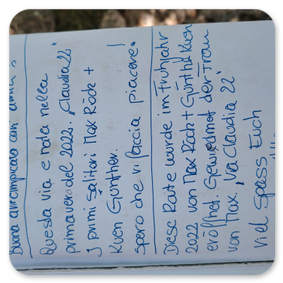 Buona arrampicata con
Questa via è nata nella
primavera del 2022. Claudia 22
I primi salitori Max Röck +
Kuen Günther.
Spero che vi faccia piacere!
Diese Route wurde im Frühjahr
2022 von Max Röck + Günther Kuen
eröffnet. Gewidmet der Frau
von Max, Via Claudia 22
Viel Spass Euch